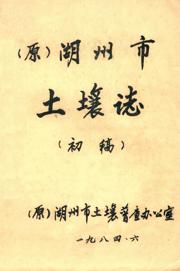 （原）湖州市
土壤誌
（初稿）
（原）湖州市土壤普查办公室
一九八四·六